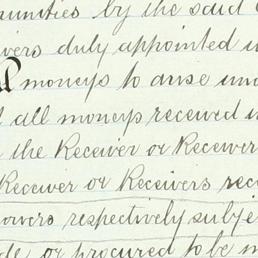 unities by the said
ivers duly appointed
All moneys to arise un
all moneys received
the Receiver or Receiver
Receiver or Receivers rec
owers respectively subje
de, or procured to be m